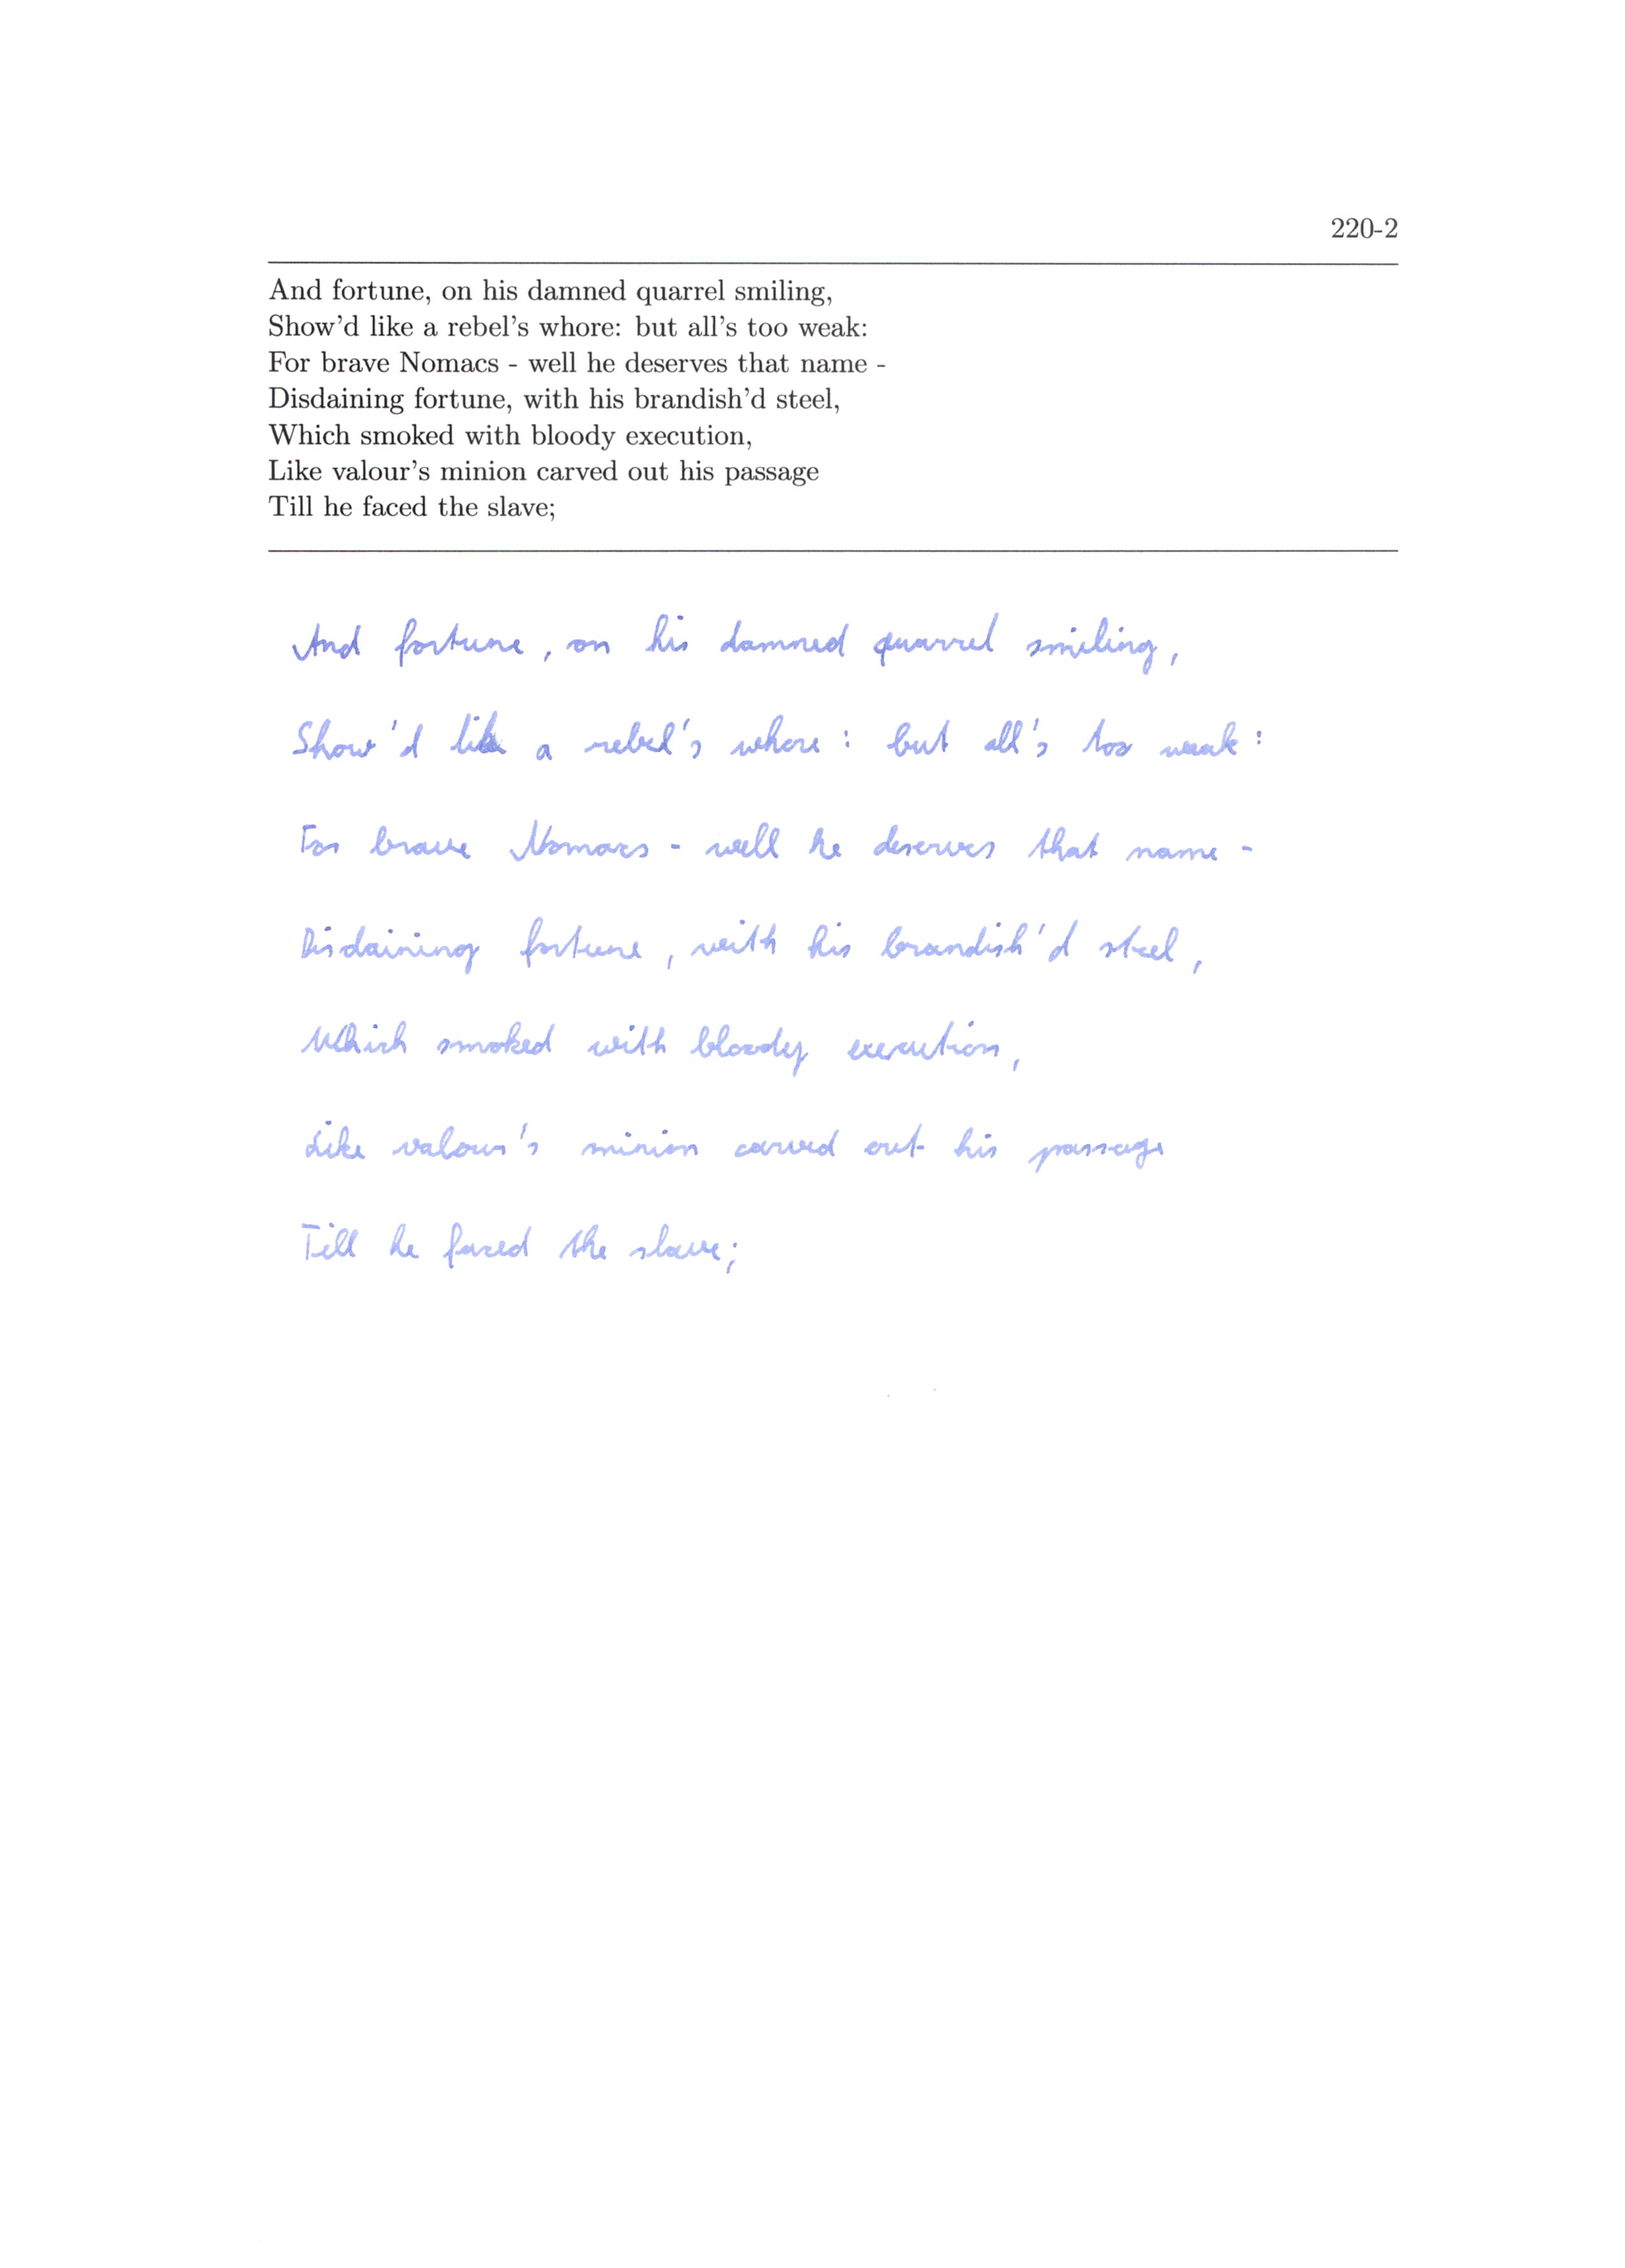 220-2
And fortune, on his damned quarrel smiling,
Show'd like a rebel's whore: but all's too weak:
For brave Nomacs - well he deserves that name -
Disdaining fortune, with his brandish'd steel,
Which smoked with bloody execution,
Like valour's minion carved out his passage
Till he faced the slave;
And fortune, on his damned quarrel smiling,
Show'd like a rebel's whore: but all's too weak:
For brave Nomacs - well he deserves that name -
Disdaining fortune, with his brandish'd steel,
Which smoked with bloody execution,
Like valour's minion carved out his passage
Till he faced the slave;